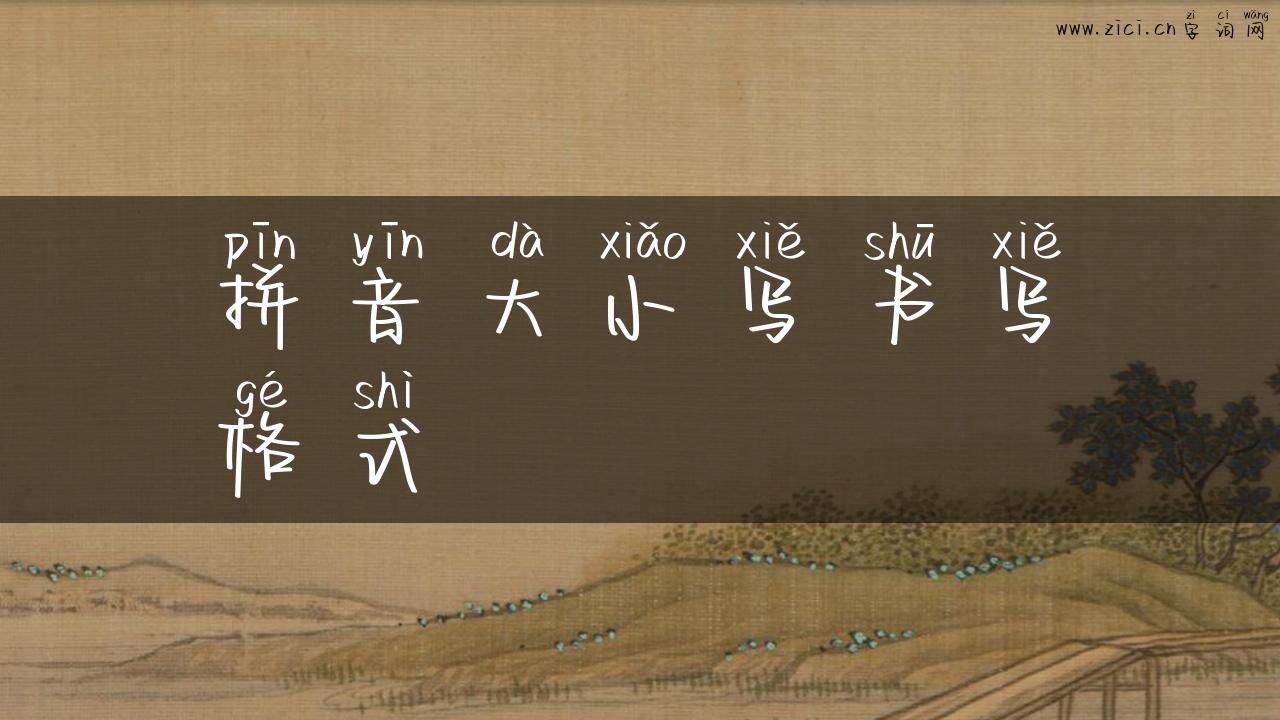 zì cí wǎng
www.zici.cn 字词网
pīn yīn dà xiǎo xiě shū xiě
拼音大小写书写
gé shì
格式